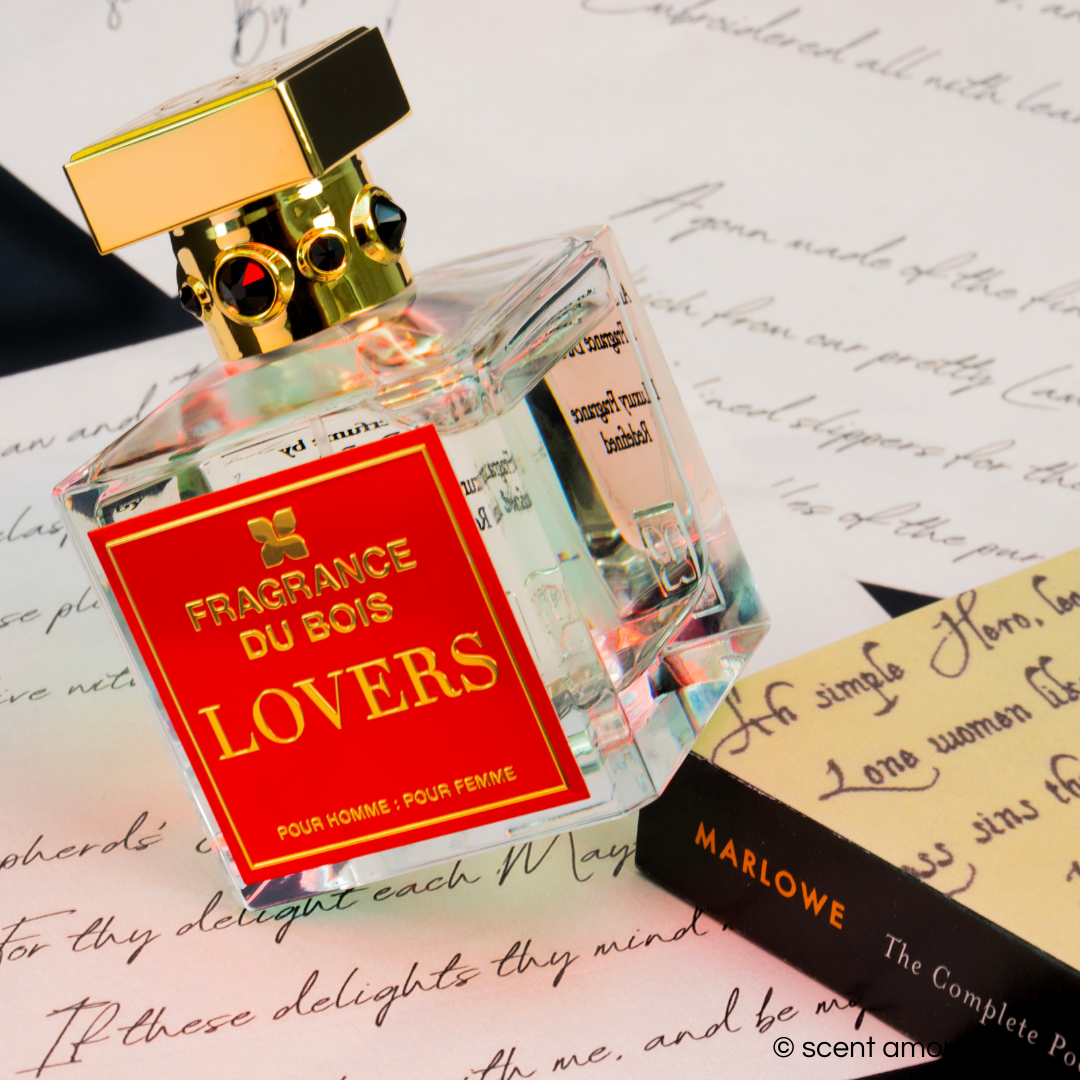 By
Embroidered all with lea
A gown made of the fin
ich from our pretty Lam
lined slippers for th
les of the pur
an and t
clas
se pl
ive wit
pherds'
For thy delight each May
If these delights thy mind
th me, and be my
Perfume by
Fragrance Du
Luxury Fragrance
Redefined
FRAGRANCE
DU BOIS
LOVERS
POUR HOMME : POUR FEMME
Ah simple Hero, lea
Lone women like
sins th
MARLOWE
The Complete Po
© scent amo